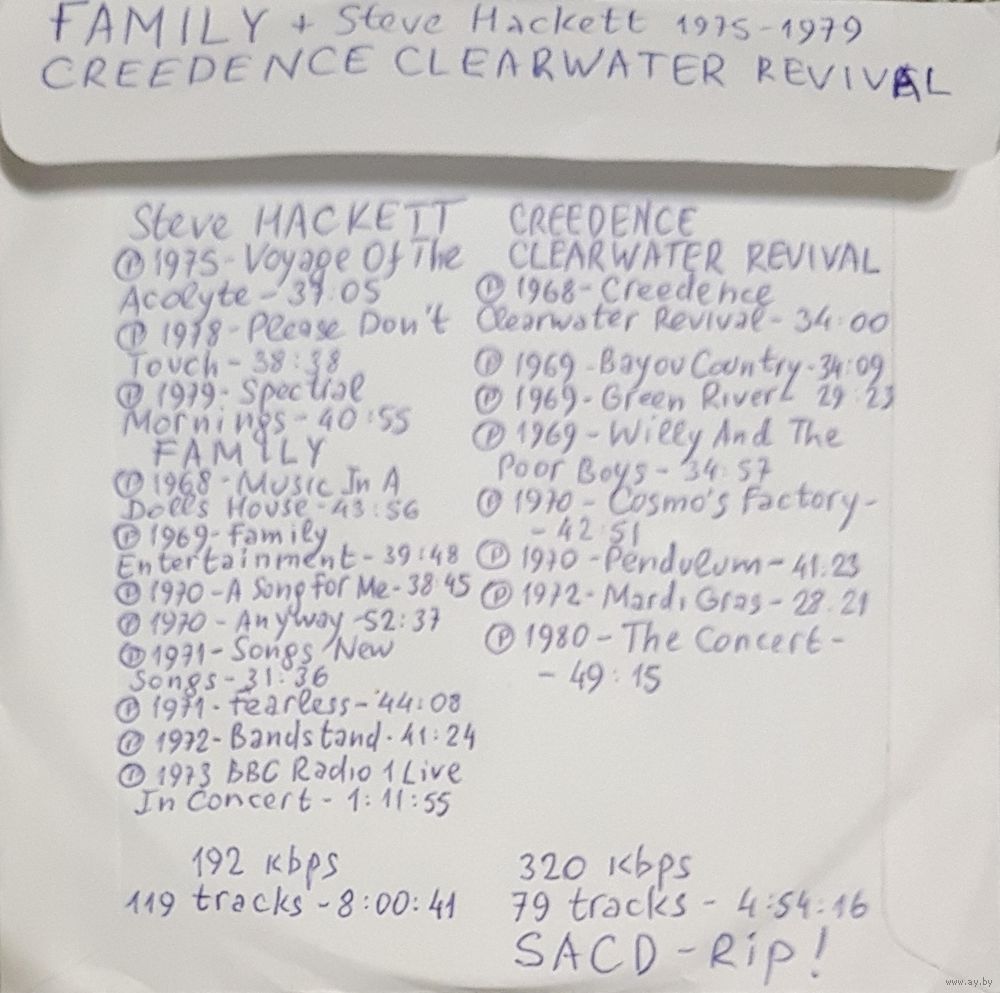 FAMILY + Steve Hackett 1975-1979
CREEDENCE CLEARWATER REVIVAL
Steve HACKETT
Ⓟ 1975- Voyage Of The
Acolyte - 39:05
Ⓟ 1978 - Please Don't
Touch - 38:38
Ⓟ 1979- Spectial
Mornings - 40:55
FAMILY
Ⓟ 1968 - Music In A
Doll's House - 43:56
Ⓟ 1969- Family
Entertainment - 39:48
Ⓟ 1970 - A Song for Me - 38:45
Ⓟ 1970 - Anyway - 52:37
Ⓟ 1971- Songs New
Songs - 31:36
Ⓟ 1971- Fearless - 44:08
Ⓟ 1972- Bandstand - 41:24
Ⓟ 1973 BBC Radio 1 Live
In Concert - 1:11:55
192 kbps
119 tracks - 8:00:41
CREEDENCE
CLEARWATER REVIVAL
Ⓟ 1968- Creedence
Clearwater Revival - 34:00
Ⓟ 1969 - Bayou Country - 34:09
Ⓟ 1969- Green River - 29:23
Ⓟ 1969 - Willy And The
Poor Boys - 34:57
Ⓟ 1970 - Cosmo's Factory -
- 42:51
Ⓟ 1970 - Pendulum - 41:23
Ⓟ 1972- Mardi Gras - 28:21
Ⓟ 1980 - The Concert -
- 49:15
320 kbps
79 tracks - 4:54:16
SACD - Rip!
www.ay.by